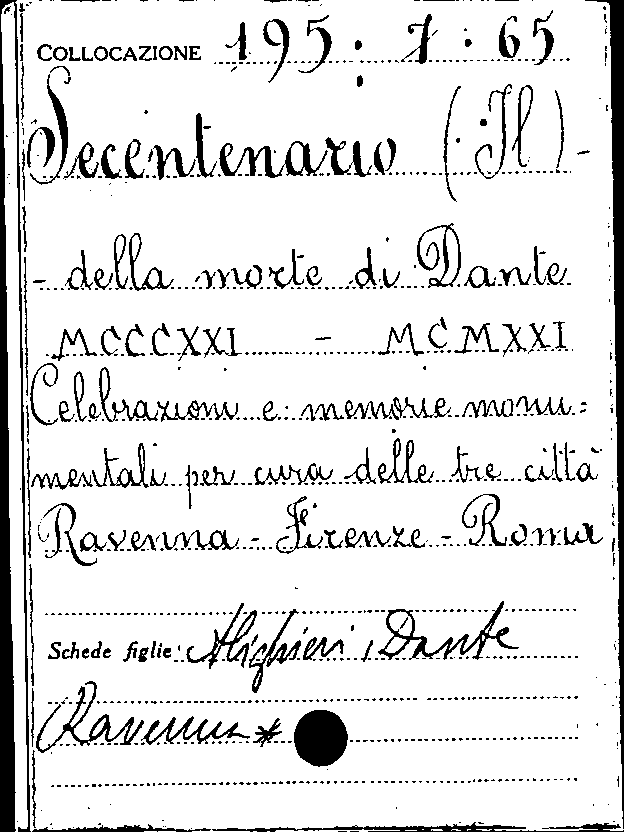 COLLOCAZIONE 195. 7. 65
Secentenario (Il) -
- della morte di Dante
MCCCXXI - MCMXXI
Celebrazioni e memorie monu=
mentali per cura delle tre città
Ravenna - Firenze - Roma
Schede figlie: Alighieri, Dante
Ravenna *